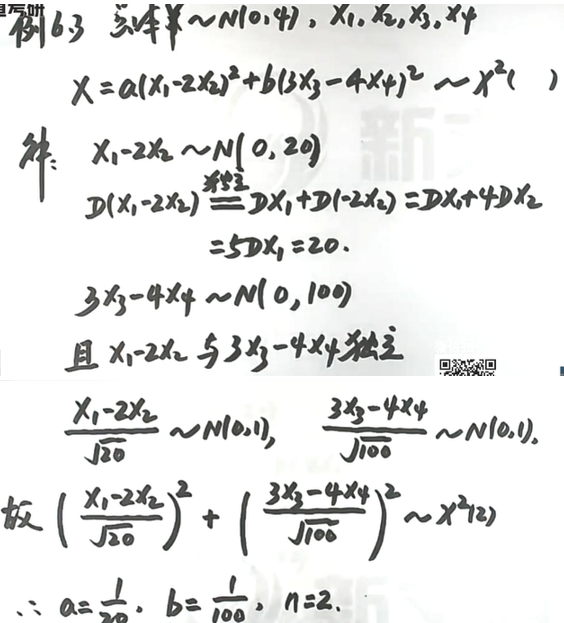 例6.3 总体X~N(0,4), X₁,X₂,X₃,X₄
X=a(X₁-2X₂)²+b(3X₃-4X₄)²~χ²( )
解: X₁-2X₂~N(0,20)
D(X₁-2X₂) 独立 = DX₁+D(-2X₂)=DX₁+4DX₂
=5DX₁=20.
3X₃-4X₄~N(0,100)
且 X₁-2X₂ 与 3X₃-4X₄ 独立
(X₁-2X₂)/√20 ~N(0,1), (3X₃-4X₄)/√100 ~N(0,1).
故 ((X₁-2X₂)/√20)² + ((3X₃-4X₄)/√100)² ~χ²(2)
∴ a=1/20, b=1/100, n=2.